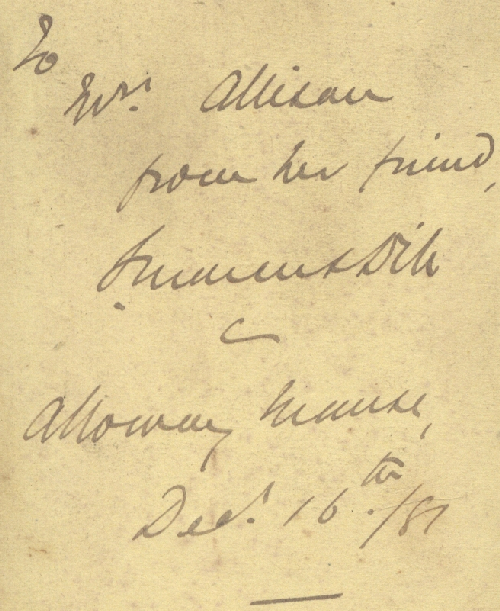 To
Mrs. Allison
from her friend,
Alloway Manse,
Decr. 16th./81